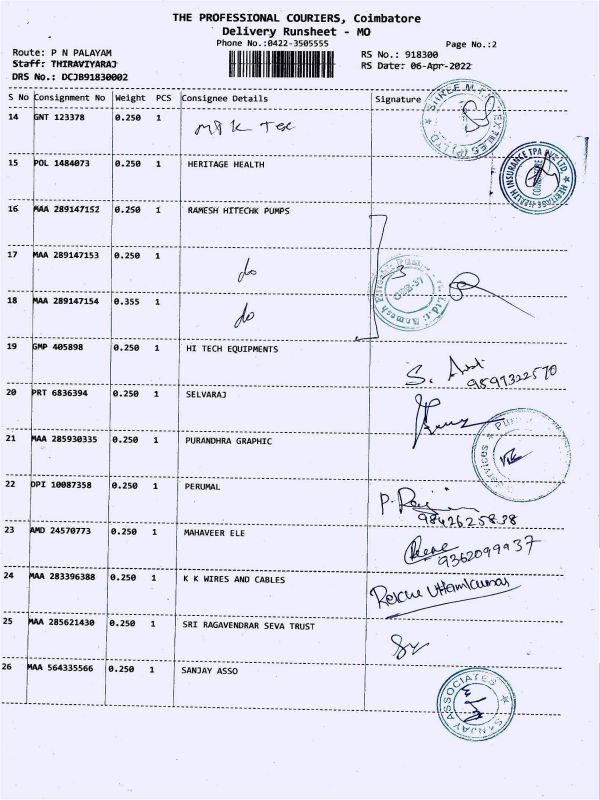 THE PROFESSIONAL COURIERS, Coimbatore
Delivery Runsheet - MO
Phone No.:0422-3505555
Page No.:2
Route: P N PALAYAM
RS No.: 918300
Staff: THIRAVIYARAJ
RS Date: 06-Apr-2022
DRS No.: DCJB91830002
S No Consignment No Weight PCS Consignee Details Signature
14 GNT 123378 0.250 1
15 POL 1484073 0.250 1 HERITAGE HEALTH
HEALTH INSURANCE TPA PVT. LTD. ★ HERITAGE
16 MAA 289147152 0.250 1 RAMESH HITECHK PUMPS
17 MAA 289147153 0.250 1 do
18 MAA 289147154 0.355 1 do
19 GMP 405898 0.250 1 HI TECH EQUIPMENTS
9599322570
20 PRT 6836394 0.250 1 SELVARAJ
21 MAA 285930335 0.250 1 PURANDHRA GRAPHIC
22 DPI 10087358 0.250 1 PERUMAL
9842625838
23 AMD 24570773 0.250 1 MAHAVEER ELE
9362099937
24 MAA 283396388 0.250 1 K K WIRES AND CABLES
25 MAA 285621430 0.250 1 SRI RAGAVENDRAR SEVA TRUST
26 MAA 564335566 0.250 1 SANJAY ASSO
SANJAY ASSOCIATES ★